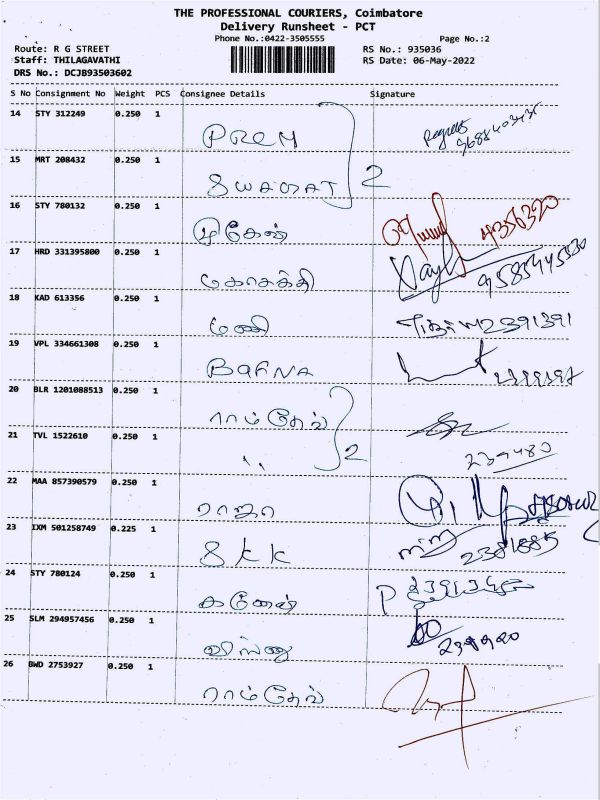 THE PROFESSIONAL COURIERS, Coimbatore
Delivery Runsheet - PCT
Phone No.:0422-3505555 Page No.:2
Route: R G STREET RS No.: 935036
Staff: THILAGAVATHI RS Date: 06-May-2022
DRS No.: DCJB93503602
S No Consignment No Weight PCS Consignee Details Signature
14 STY 312249 0.250 1 PREM
15 MRT 208432 0.250 1 SWAGAT 2
16 STY 780132 0.250 1 முகேஷ் 4356320
17 HRD 331395800 0.250 1 கோசக்தி 9585445530
18 KAD 613356 0.250 1 மணி 2391391
19 VPL 334661308 0.250 1 BAFNA
20 BLR 1201088513 0.250 1 ராம்தேவ் 2
21 TVL 1522610 0.250 1 " 239480
22 MAA 857390579 0.250 1 ராஜா
23 IXM 501258749 0.225 1 SKK 2381885
24 STY 780124 0.250 1 கணேஷ்
25 SLM 294957456 0.250 1 விஷ்ணு
26 BWD 2753927 0.250 1 ராம்தேவ்